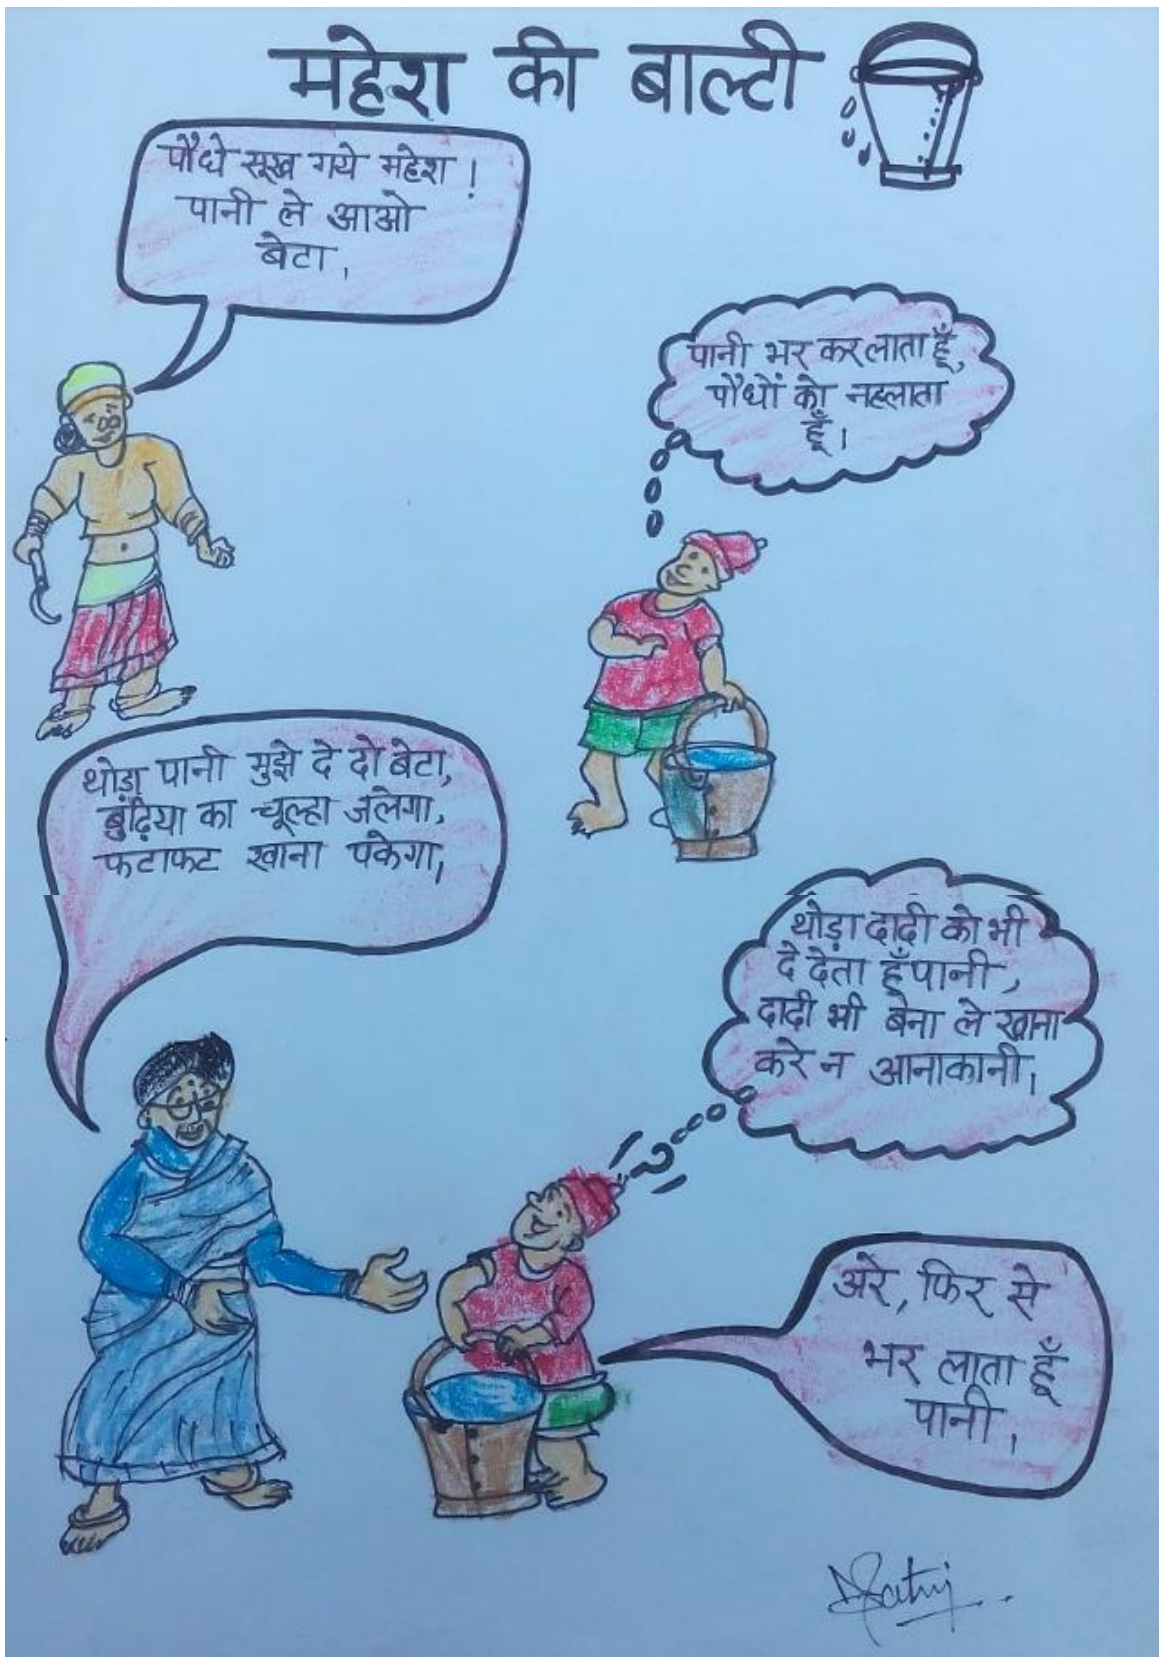 महेश की बाल्टी
पौधे सूख गये महेश !
पानी ले आओ
बेटा,
पानी भर कर लाता हूँ,
पौधों को नहलाता
हूँ।
थोड़ा पानी मुझे दे दो बेटा,
बुढ़िया का चूल्हा जलेगा,
फटाफट खाना पकेगा,
थोड़ा दादी को भी
दे देता हूँ पानी,
दादी भी बना ले खाना
करे न आनाकानी,
अरे, फिर से
भर लाता हूँ
पानी,